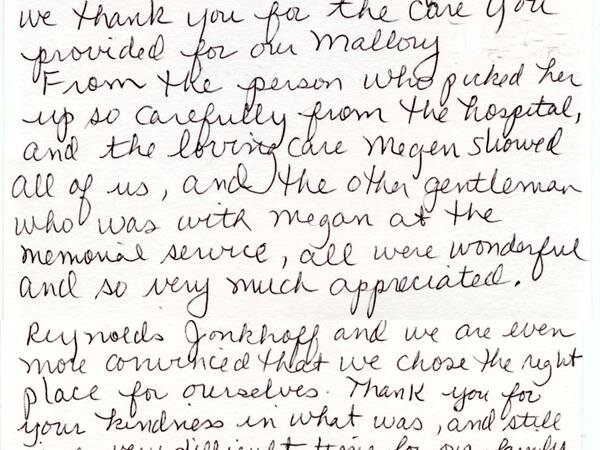 we thank you for the care you
provided for our Mallory
From the person who picked her
up so carefully from the hospital,
and the loving care Megen showed
all of us, and the other gentleman
who was with Megan at the
memorial service, all were wonderful
and so very much appreciated.
Reynolds Jonkhoff and we are even
more convinced that we chose the right
place for ourselves. Thank you for
your kindness in what was, and still
is a very difficult time for our family